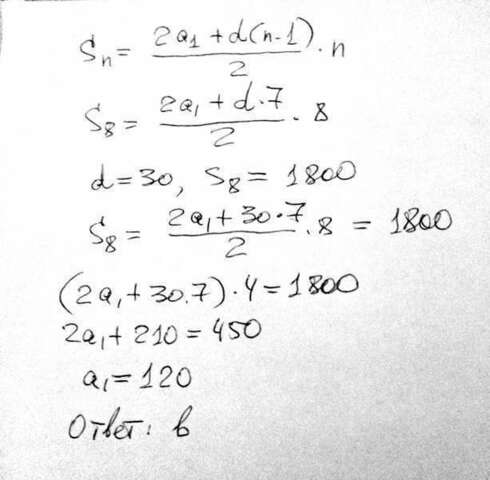 Sₙ = (2a₁ + d(n-1))/2 · n
S₈ = (2a₁ + d·7)/2 · 8
d = 30, S₈ = 1800
S₈ = (2a₁ + 30·7)/2 · 8 = 1800
(2a₁ + 30·7) · 4 = 1800
2a₁ + 210 = 450
a₁ = 120
Ответ: в